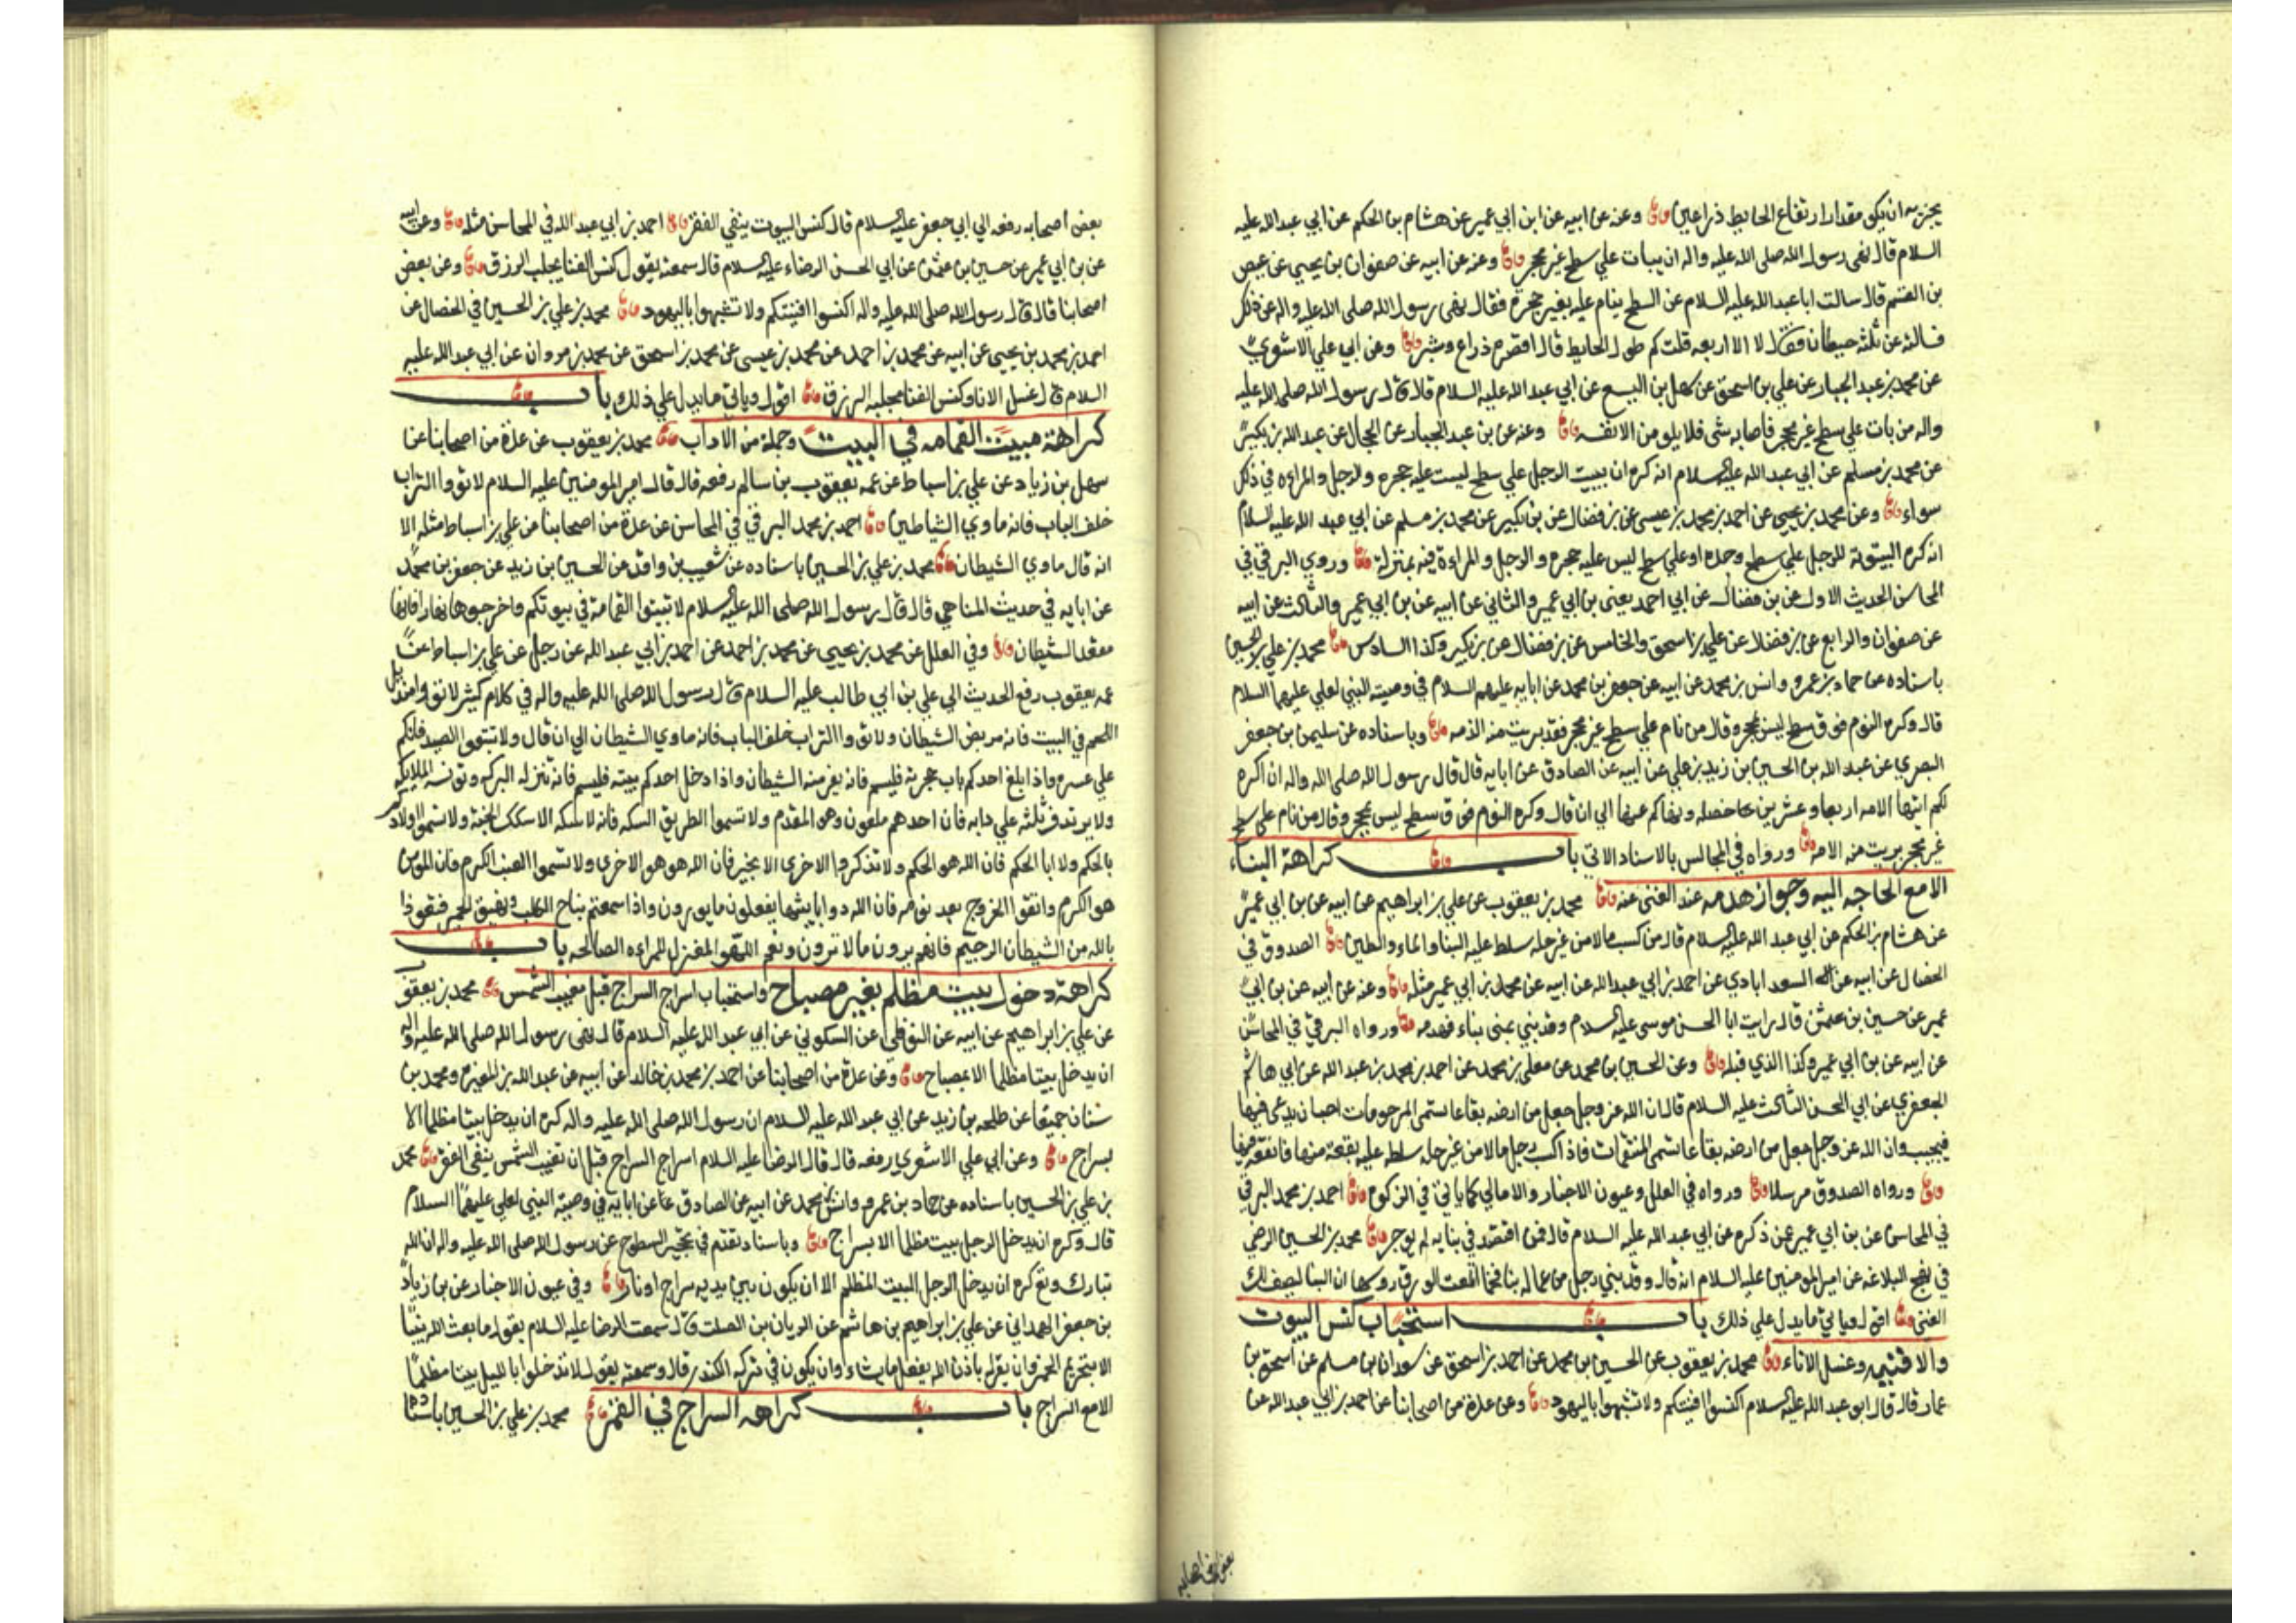 يجزيه ان يكون مقدار ارتفاع الحايط ذراعين وعنه عن ابيه عن ابن ابي عمير عن هشام بن الحكم عن ابي عبد الله عليه
السلام قال نهى رسول الله صلى الله عليه واله ان يبات علي سطح غير محجر وعنه عن ابيه عن صفوان بن يحيي عن عيص
بن القسم قال سالت ابا عبد الله عليه السلام عن السطح ينام عليه بغير حجرة فقال نهى رسول الله صلى الله عليه واله عن ذلك
فسالته عن ثلثه حيطان فقال لا الا اربعه قلت كم طول الحايط قال اقصره ذراع وشبر وعن ابي علي الاشعري
عن محمد بن عبد الجبار عن علي بن اسحق عن سهل بن اليسع عن ابي عبد الله عليه السلام قال قال رسول الله صلى الله عليه
واله من بات علي سطح غير محجر فاصابه شى فلا يلومن الا نفسه وعنه عن بن عبد الجبار عن الحجال عن عبد الله بن بكير
عن محمد بن مسلم عن ابي عبد الله عليه السلام انه كره ان يبيت الرجل علي سطح ليست عليه حجره والرجل والمراءه في ذلك
سواء وعن محمد بن يحيى عن احمد بن محمد بن عيسى عن بن فضال عن بن بكير عن محمد بن مسلم عن ابي عبد الله عليه السلام
انه كره البيتوتة للرجل علي سطح وحده او علي سطح ليس عليه حجره والرجل والمراءة فيه بمنزلة وروي البرقي في
المحاسن الحديث الاول عن بن فضال عن ابي احمد يعنى بن ابي عمير والثاني عن ابيه عن بن ابي عمير والثالث عن ابيه
عن صفوان والرابع عن بن فضال عن علي بن اسحق والخامس عن بن فضال عن بن بكير وكذا السادس محمد بن علي بن الحسين
باسناده عن حماد بن عمرو وانس بن محمد عن ابيه عن جعفر بن محمد عن ابايه عليهم السلام في وصية النبي لعلي عليهما السلام
قال وكره النوم فوق سطح ليس بمحجر وقال من نام علي سطح غير محجر فقد بريت منه الذمه وباسناده عن سليمن بن جعفر
البصري عن عبد الله بن الحسين بن زيد بن علي عن ابيه عن الصادق عن ابايه قال قال رسول الله صلى الله واله ان الله كره
لكم ايتها الامه اربعا وعشرين خصله ونهاكم عنها الي ان قال وكره النوم فوق سطح ليس بمحجر وقال من نام على سطح
غير محجر بريت منه الامه ورواه في المجالس بالاسناد الاتي باب كراهة البناء
الا مع الحاجه اليه وجواز هدمه عند الغنى عنه محمد بن يعقوب عن علي بن ابراهيم عن ابيه عن بن ابي عمير
عن هشام بن الحكم عن ابي عبد الله عليه السلام قال من كسب مالا من غير حله سلط عليه البنا والماء والطين الصدوق في
الخصال عن ابيه عن السعد ابادي عن احمد بن ابي عبد الله عن ابيه عن محمد بن ابي عمير مثله وعنه عن ابيه عن بن ابي
عمير عن حسين بن عثمن قال رايت ابا الحسن موسى عليه السلام وقد بني بمنى بناء فهدمه ورواه البرقي في المحاسن
عن ابيه عن بن ابي عمير وكذا الذي قبله وعن الحسين بن محمد عن معلى بن محمد عن احمد بن محمد بن عبد الله عن ابي هاشم
الجعفري عن ابي الحسن الثالث عليه السلام قال ان الله عز وجل جعل من ارضه بقاعا تسمى المرحومات احب ان يدعى فيها
فيجيب وان الله عز وجل جعل من ارضه بقاعا تسمى المنتقمات فاذا كسب رجل مالا من غير حله سلط عليه بقعة منها فانفقه فيها
ورواه الصدوق مرسلا ورواه في العلل وعيون الاخبار والامالي كما ياتي في الزكوه احمد بن محمد البرقي
في المحاسن عن بن ابي عمير عمن ذكره عن ابي عبد الله عليه السلام قال فمن اقتصد في بنايه لم يوجر محمد بن الحسين الرضي
في نهج البلاغه عن امير المومنين عليه السلام انه قال وقد بني رجل من عماله بنا فخما اطلعت الورق روسها ان البنا ليصف لك
الغنى اقول وياتي ما يدل علي ذلك باب استحباب كنس البيوت
والافنيه وغسل الاناء محمد بن يعقوب عن الحسين بن محمد عن احمد بن اسحق عن سعدان بن مسلم عن اسحق بن
عمار قال قال ابو عبد الله عليه السلام اكنسوا افنيتكم ولا تشبهوا باليهود وعن عدة من اصحابنا عن احمد بن ابي عبد الله عن
بعض اصحابه
بعض اصحابه رفعه الي ابي جعفر عليه السلام قال كنس البيوت ينفي الفقر احمد بن ابي عبد الله في المحاسن مثله وعن ابيه
عن بن ابي عمير عن حسين بن عثمن عن ابي الحسن الرضاء عليه السلام قال سمعته يقول كنس الفنا يجلب الرزق وعن بعض
اصحابنا قال قال رسول الله صلى الله عليه واله اكنسوا افنيتكم ولا تشبهوا باليهود محمد بن علي بن الحسين في الخصال عن
احمد بن محمد بن يحيي عن ابيه عن محمد بن احمد عن محمد بن عيسى عن محمد بن اسحق عن محمد بن مروان عن ابي عبد الله عليه
السلام قال غسل الانا وكنس الفنا مجلبه الرزق اقول وياتي ما يدل علي ذلك باب
كراهة مبيت القمامه في البيت وجملة من الاداب محمد بن يعقوب عن عدة من اصحابنا عن
سهل بن زياد عن علي بن اسباط عن عمه يعقوب بن سالم رفعه قال قال امير المومنين عليه السلام لا تووا التراب
خلف الباب فانه ماوي الشياطين احمد بن محمد البرقي في المحاسن عن عدة من اصحابنا عن علي بن اسباط مثله الا
انه قال ماوي الشيطان محمد بن علي بن الحسين باسناده عن شعيب بن واقد عن الحسين بن زيد عن جعفر بن محمد
عن ابايه في حديث المناهي قال قال رسول الله صلى الله عليه السلام لا تبيتوا القمامة في بيوتكم واخرجوها نهارا فانها
مقعد الشيطان وفي العلل عن محمد بن يحيي عن محمد بن احمد عن احمد بن ابي عبد الله عن رجل عن علي بن اسباط عن
عمه يعقوب رفع الحديث الي علي بن ابي طالب عليه السلام قال رسول الله صلى الله عليه واله في كلام كثير لا تووا منديل
اللحم في البيت فانه مربض الشيطان ولا تووا التراب خلف الباب فانه ماوي الشيطان الي ان قال ولا تتبعوا الصيد فانكم
علي غره واذا بلغ احدكم باب حجرته فليسم فانه يفر منه الشيطان واذا دخل احدكم بيته فليسم فانه تنزله البركه وتونسه الملايكه
ولا يرتدف ثلثه علي دابه فان احدهم ملعون وهو المقدم ولا تسموا الطريق السكه فانه لا سكه الا سكك الجنة ولا تسموا اولادكم
بالحكم ولا ابا الحكم فان الله هو الحكم ولا تذكروا الاخرى الا بخير فان الله هو هو الاخرى ولا تسموا العنب الكرم فان المومن
هو الكرم واتقوا الخروج بعد نومه فان الله دوابا يبثها يفعلون ما يومرون واذا سمعتم نباح الكلب ونهيق الحمير فتعوذوا
بالله من الشيطان الرجيم فانهم يرون ما لا ترون ونعم اللهو المغزل للمراءه الصالحه باب
كراهة دخول بيت مظلم بغير مصباح واستحباب اسراج السراج قبل مغيب الشمس محمد بن يعقوب
عن علي بن ابراهيم عن ابيه عن النوفلي عن السكوني عن ابي عبد الله عليه السلام قال نهى رسول الله صلى الله عليه واله
ان يدخل بيتا مظلما الا بمصباح وعن عدة من اصحابنا عن احمد بن محمد بن خالد عن ابيه عن عبد الله بن المغيره ومحمد بن
سنان جميعا عن طلحه بن زيد عن ابي عبد الله عليه السلام ان رسول الله صلى الله عليه واله كره ان يدخل بيتا مظلما الا
بسراج وعن ابي علي الاشعري رفعه قال قال الرضا عليه السلام اسراج السراج قبل ان تغيب الشمس ينفى الفقر محمد
بن علي بن الحسين باسناده عن حماد بن عمرو وانس بن محمد عن ابيه عن الصادق عن ابايه في وصية النبي لعلي عليهما السلام
قال وكره ان يدخل الرجل بيت مظلما الا بسراج وباسناد تقدم في تحجير السطوح عن رسول الله صلى الله عليه واله ان الله
تبارك وتع كره ان يدخل الرجل البيت المظلم الا ان يكون بين يديه سراج او نار وفي عيون الاخبار عن بن زياد
بن جعفر الهمداني عن علي بن ابراهيم بن هاشم عن الريان بن الصلت قال سمعت الرضا عليه السلام يقول ما بعث الله نبيا
الا بتحريم الخمر وان يقر له باذن الله يفعل ما يشاء وان يكون في تركه الكندر قال وسمعته يقول لا تدخلوا بالليل بيتا مظلما
الا مع السراج باب كراهه السراج في القمر محمد بن علي بن الحسين باسناده